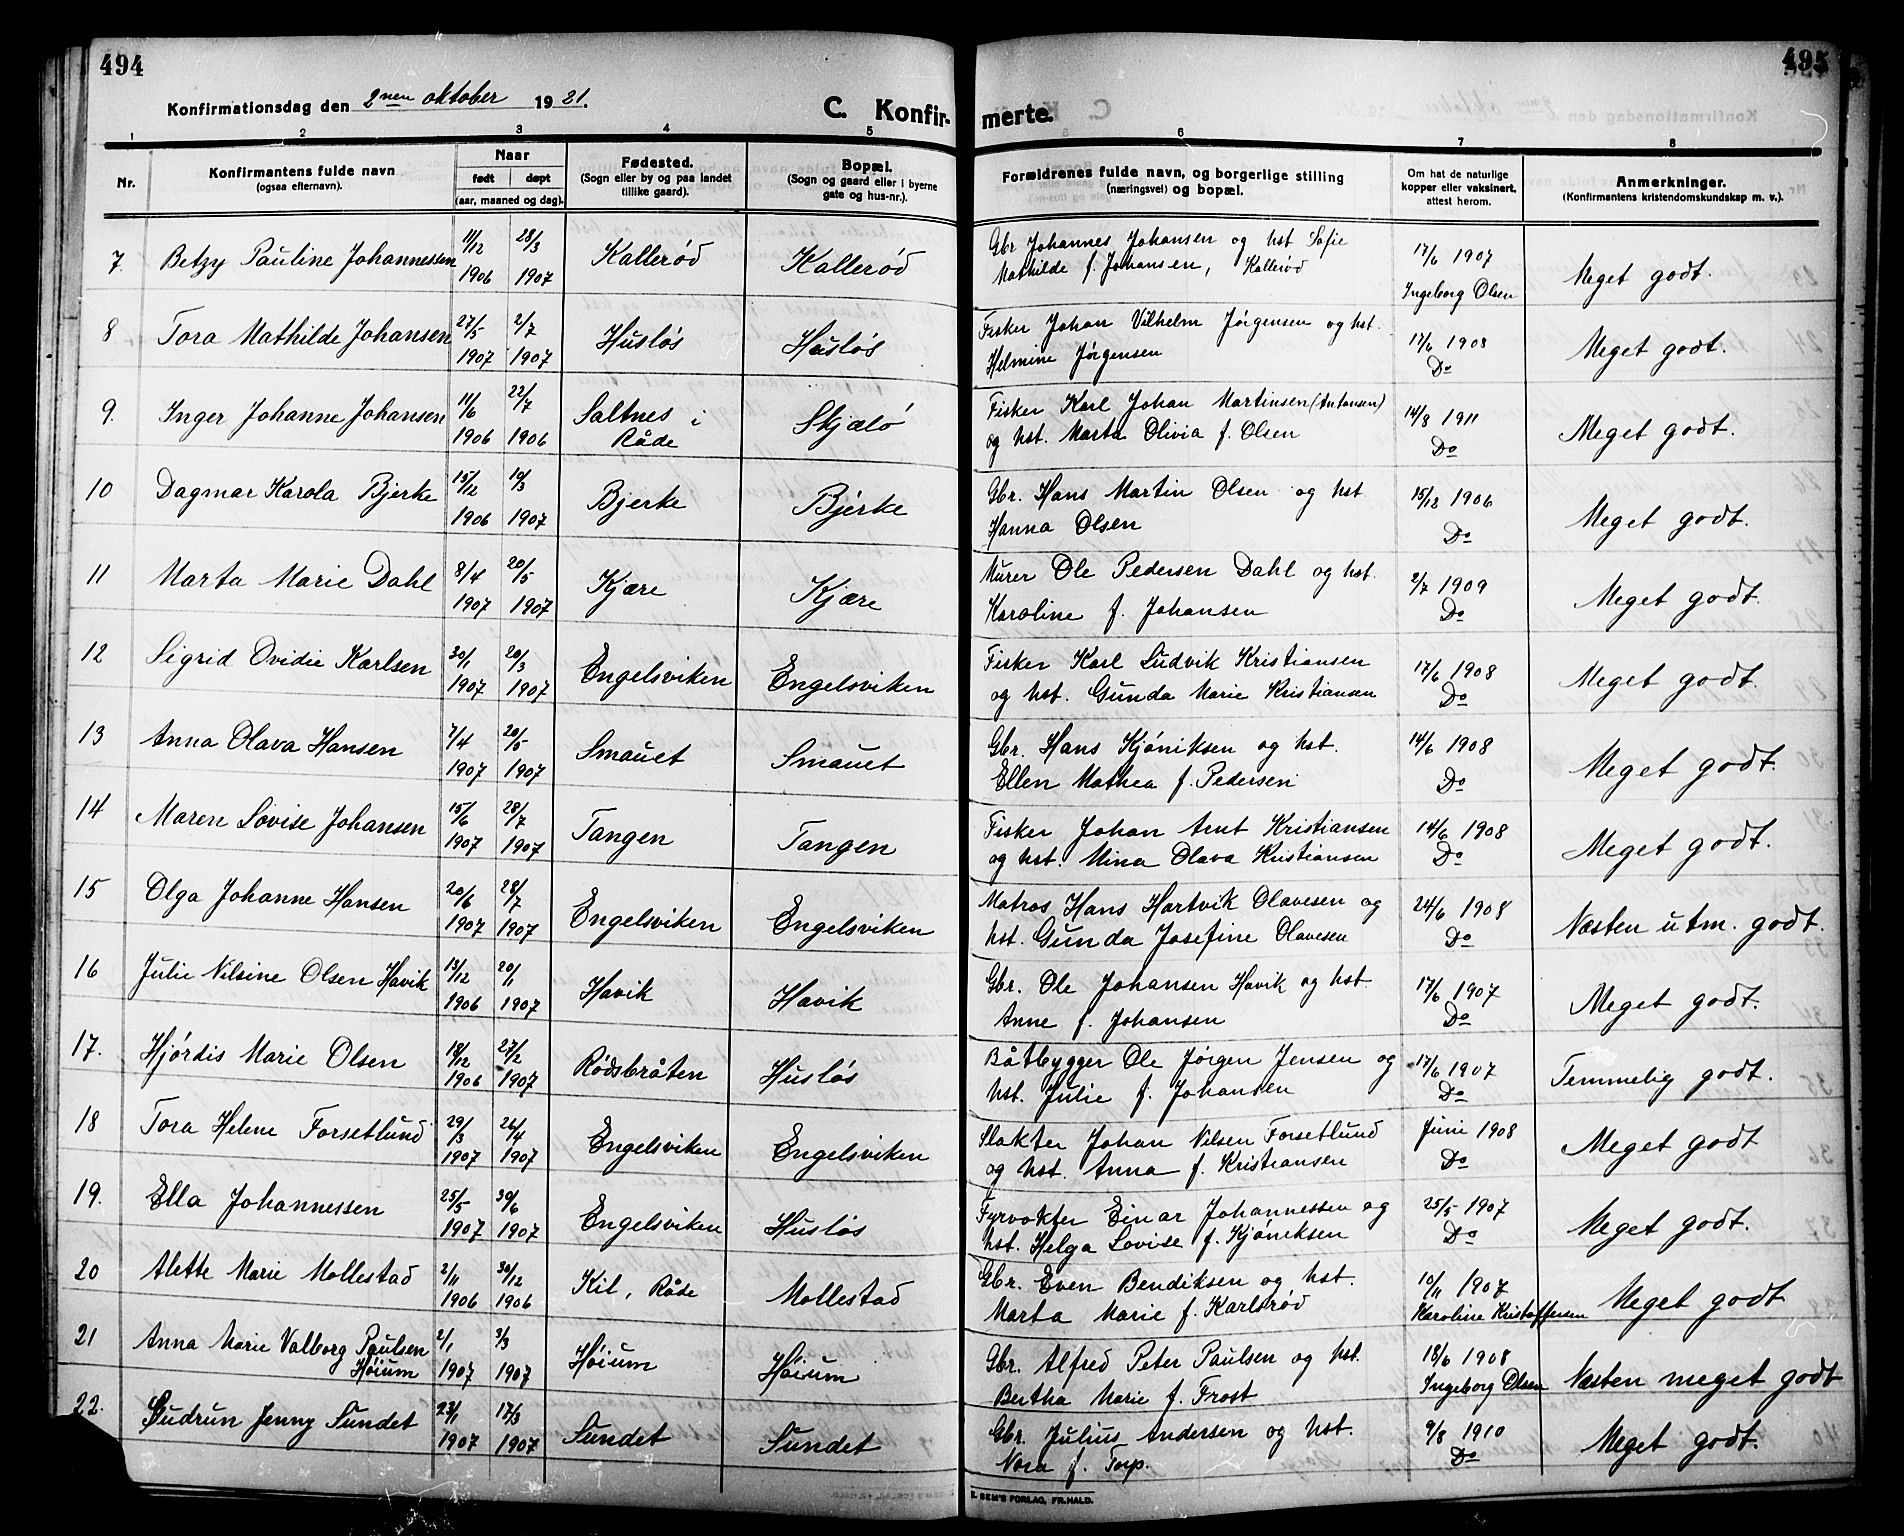 494
495
Konfirmationsdag den 2nen oktober 1921.
C. Konfir-
merte.
1 2 3 4 5 6 7 8
Nr.
Konfirmantens fulde navn
(ogsaa efternavn).
Naar
født døpt
(aar, maaned og dag).
Fødested.
(Sogn eller by og paa landet
tillike gaard).
Bopæl.
(Sogn og gaard eller i byerne
gate og hus-nr.).
Forældrenes fulde navn, og borgerlige stilling
(næringsvei) og bopæl.
Om hat de naturlige
kopper eller vaksinert,
attest herom.
Anmerkninger.
(Konfirmantens kristendomskundskap m. v.).
7. Betzy Pauline Johannessen 11/12 1906 28/3 1907 Kallerød Kallerød
Gbr Johannes Johansen og hst Sofie
Mathilde f. Johansen, Kallerød
17/6 1907
Ingeborg Olsen
Meget godt.
8 Tora Mathilde Johansen 27/5 1907 2/7 1907 Husløs Husløs
Fisker Johan Vilhelm Jørgensen og hst.
Helmine Jørgensen
17/6 1908
Do
Meget godt.
9. Inger Johanne Johansen 11/6 1906 22/7 1906 Saltnes i Råde Skjælø
Fisker Karl Johan Martinsen (Antonsen)
og hst. Marta Olivia f. Olsen
14/8 1911
Do
Meget godt.
10 Dagmar Karola Bjerke 15/12 1906 10/3 1907 Bjerke Bjerke
Gbr. Hans Martin Olsen og hst.
Hanna Olsen
15/12 1906
Do
Meget godt.
11 Marta Marie Dahl 8/4 1907 20/5 1907 Kjære Kjære
Murer Ole Pedersen Dahl og hst.
Karoline f. Johansen
2/7 1909
Do
Meget godt.
12 Sigrid Ovidie Karlsen 30/1 1907 20/3 1907 Engelsviken Engelsviken
Fisker Karl Ludvik Kristiansen
og hst. Gunda Marie Kristiansen
17/6 1908
Do
Meget godt.
13 Anna Olava Hansen 7/4 1907 20/5 1907 Smauet Smauet
Gbr. Hans Kjøniksen og hst.
Ellen Mathea f. Pedersen
14/6 1908
Do
Meget godt.
14 Maren Lovise Johansen 15/6 1907 28/7 1907 Tangen Tangen
Fisker Johan Arnt Kristiansen
og hst. Mina Olava Kristiansen
14/6 1908
Do
Meget godt.
15 Olga Johanne Hansen 20/6 1907 28/7 1907 Engelsviken Engelsviken
Matros Hans Hartvik Olavesen og
hst. Gunda Josefine Olavesen
24/6 1908
Do
Næsten utm. godt.
16 Julie Nilsine Olsen Havik 13/12 1906 20/1 1907 Havik Havik
Gbr. Ole Johansen Havik og hst.
Anne f. Johansen
17/6 1907
Do
Meget godt.
17. Hjørdis Marie Olsen 18/12 1906 27/2 1907 Rødsbråten Husløs
Båtbygger Ole Jørgen Jensen og
hst. Julie f. Johansen
17/6 1907
Do
Temmelig godt.
18 Tora Helene Forsetlund 29/3 1907 26/4 1907 Engelsviken Engelsviken
Slakter Johan Nilsen Forsetlund
og hst. Anna f. Kristiansen
Juni 1908
Do
Meget godt
19. Ella Johannessen 25/5 1907 30/6 1907 Engelsviken Husløs
Fyrvokter Einar Johannessen og
hst. Helga Lovise f. Kjøniksen
25/5 1907
Do
Meget godt.
20 Alette Marie Mollestad 2/11 1906 30/12 1906 Kil, Råde Mollestad
Gbr. Even Bendiksen og hst.
Marta Marie f. Karlsrød
10/11 1907
Karoline Kristoffersen
Meget godt
21 Anna Marie Valborg Paulsen Høium 2/1 1907 3/3 1907 Høium Høium
Gbr. Alfred Peter Paulsen og hst.
Bertha Marie f. Frost
18/6 1908
Ingeborg Olsen
Næsten meget godt
22. Gudrun Jenny Sundet 23/1 1907 17/3 1907 Sundet Sundet
Gbr. Julius Andersen og hst.
Nora f. Torp.
9/8 1910
Do
Meget godt.
E. SEM'S FORLAG, FR.HALD.